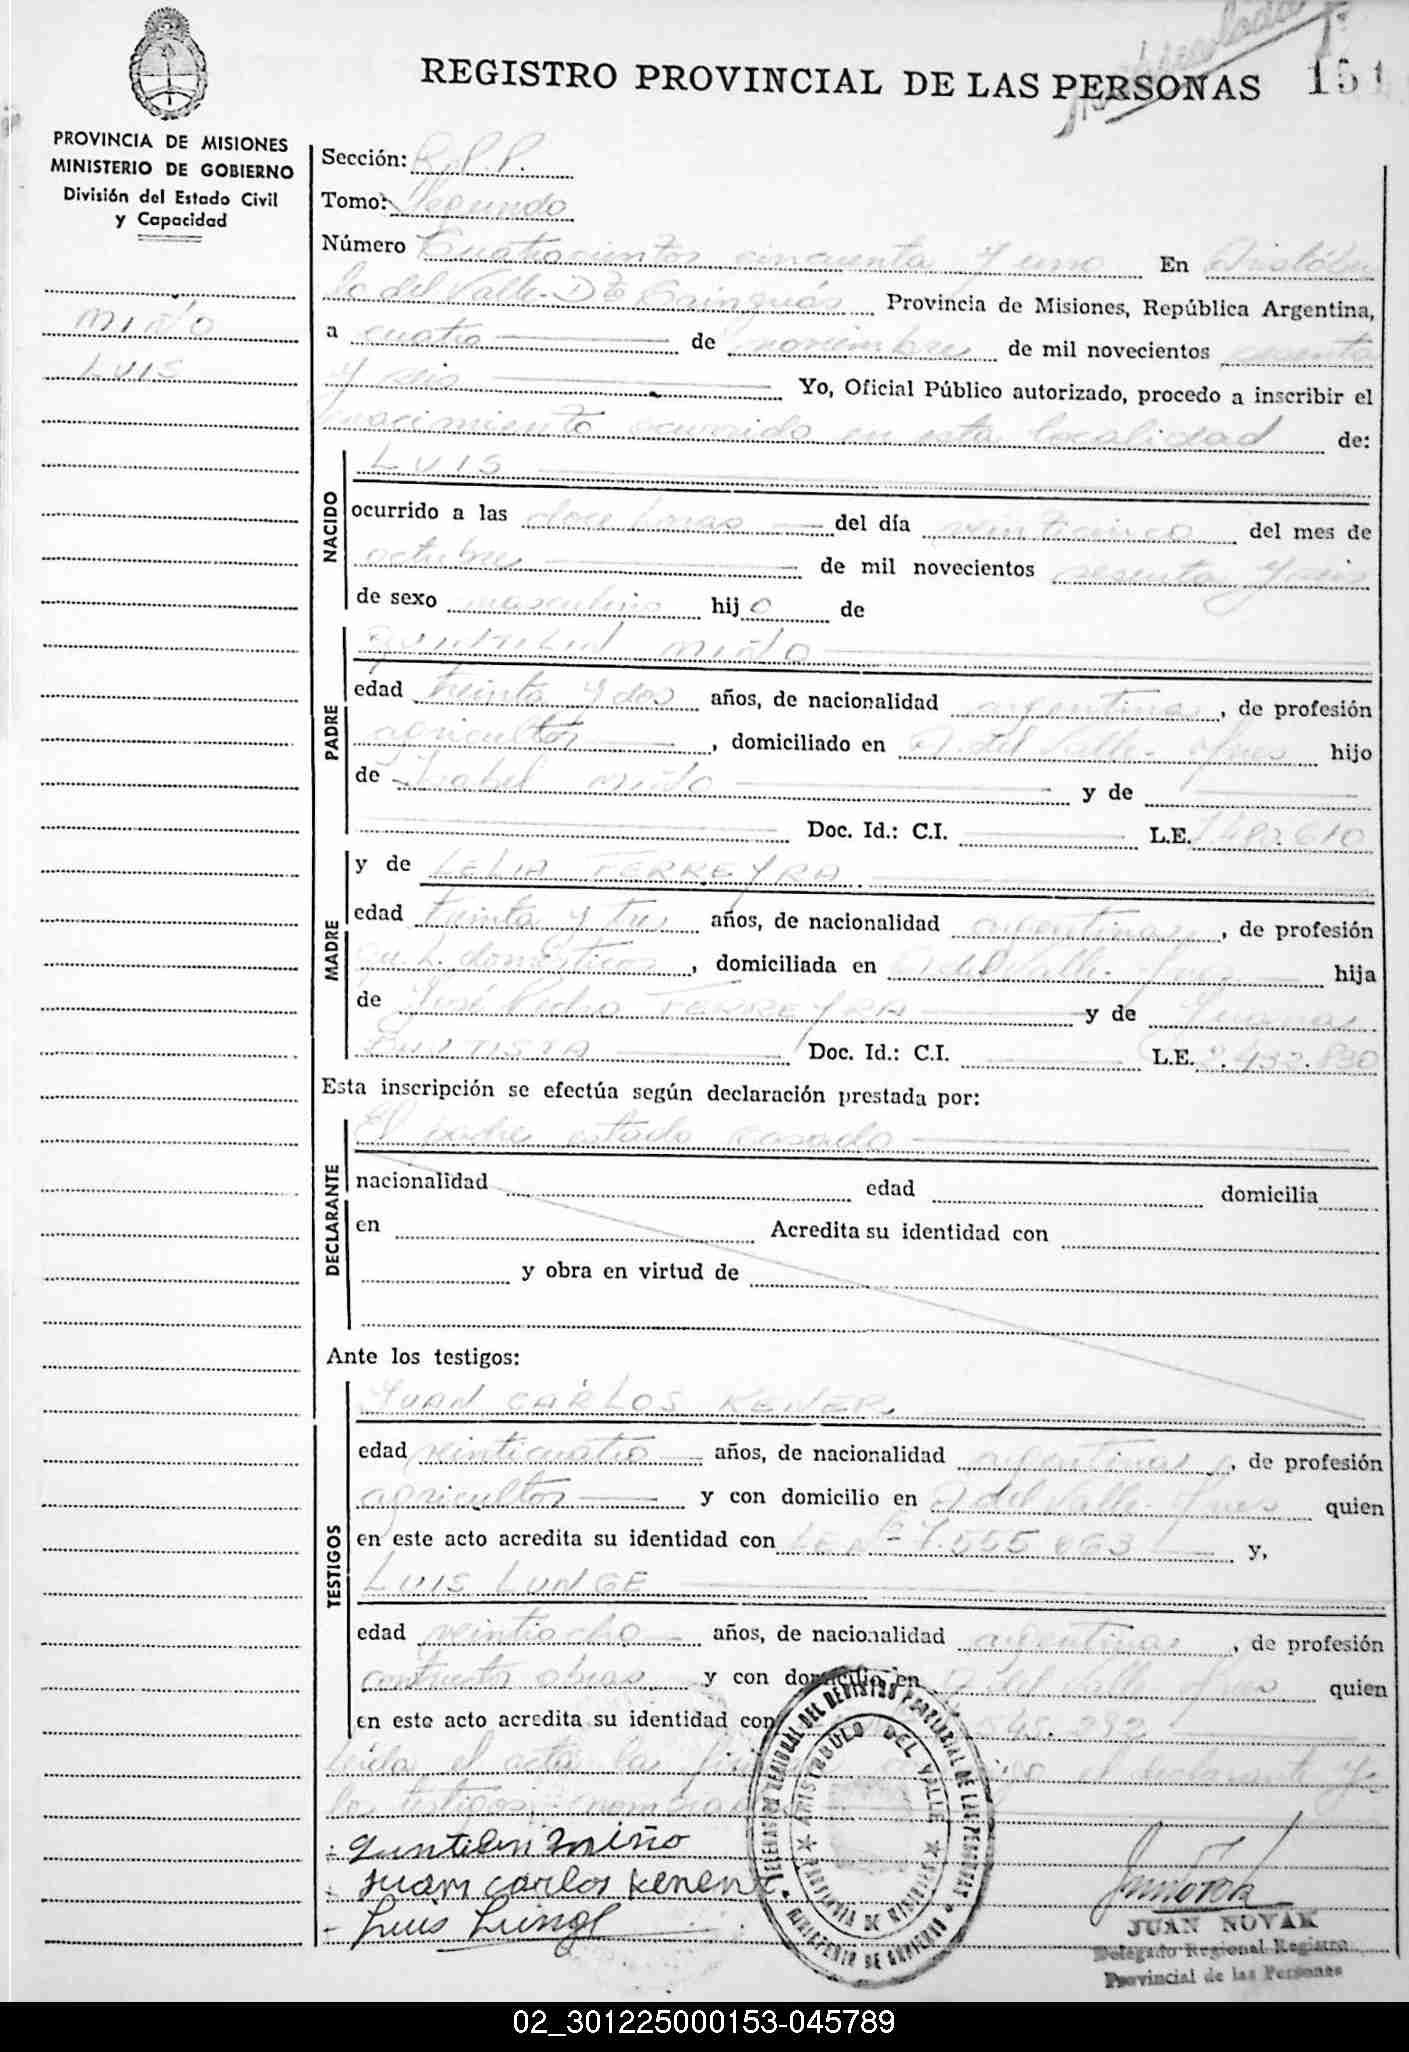 REGISTRO PROVINCIAL DE LAS PERSONAS 151
PROVINCIA DE MISIONES
MINISTERIO DE GOBIERNO
División del Estado Civil
y Capacidad
MIÑO
LUIS
Sección: R.P.P.
Tomo: Segundo
Número Cuatrocientos cincuenta y uno En Aristóbu
lo del Valle - Dto Cainguás Provincia de Misiones, República Argentina,
a cuatro de noviembre de mil novecientos sesenta
y seis Yo, Oficial Público autorizado, procedo a inscribir el
nacimiento ocurrido en esta localidad de:
NACIDO
LUIS
ocurrido a las doce horas del día veinticinco del mes de
octubre de mil novecientos sesenta y seis
de sexo masculino hijo de
PADRE
QUINTILIN MIÑO
edad treinta y dos años, de nacionalidad argentina, de profesión
agricultor, domiciliado en A. del Valle - Mnes hijo
de Isabel MIÑO y de
Doc. Id.: C.I. L.E. 610
MADRE
y de LELIA FERREYRA
edad treinta y tres años, de nacionalidad argentina, de profesión
qu. h. domésticos, domiciliada en A. del Valle - Mnes hija
de José Pedro FERREYRA y de Juana
BUITISTA Doc. Id.: C.I. L.E. 2.432.830
Esta inscripción se efectúa según declaración prestada por:
DECLARANTE
El padre estado casado
nacionalidad edad domicilia
en Acredita su identidad con
y obra en virtud de
Ante los testigos:
TESTIGOS
JUAN CARLOS KENER
edad veinticuatro años, de nacionalidad argentina, de profesión
agricultor y con domicilio en A. del Valle - Mnes quien
en este acto acredita su identidad con LE Nº 7.555.663 y,
LUIS LUNGE
edad veintiocho años, de nacionalidad argentina, de profesión
constructor obras y con domicilio en A. del Valle Mnes quien
en este acto acredita su identidad con 545.292
Leída el acta la el declarante y
los testigos nombrados
Quintilin Miño
Juan Carlos Kener
Luis Lunge
DEL REGISTRO PROVINCIAL DE LAS PERSONAS
ARISTOBULO DEL VALLE
PROVINCIA DE MISIONES
MINISTERIO DE GOBIERNO
JUAN NOVAK
Delegado Regional Registro
Provincial de las Personas
02_301225000153-045789